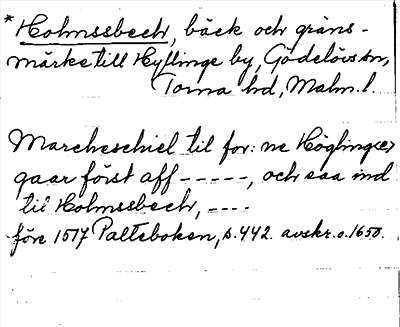 * Holmssbech, bäck och gräns-
märke till Hyllinge by, Gödelövs sn,
Torna hd, Malm. l.
Marcheschiel til for: ne Höglinge,
gaar först aff -----, och saa ind
til Holmssbech, ----
före 1517 Palteboken, s. 442. avskr. o. 1650.